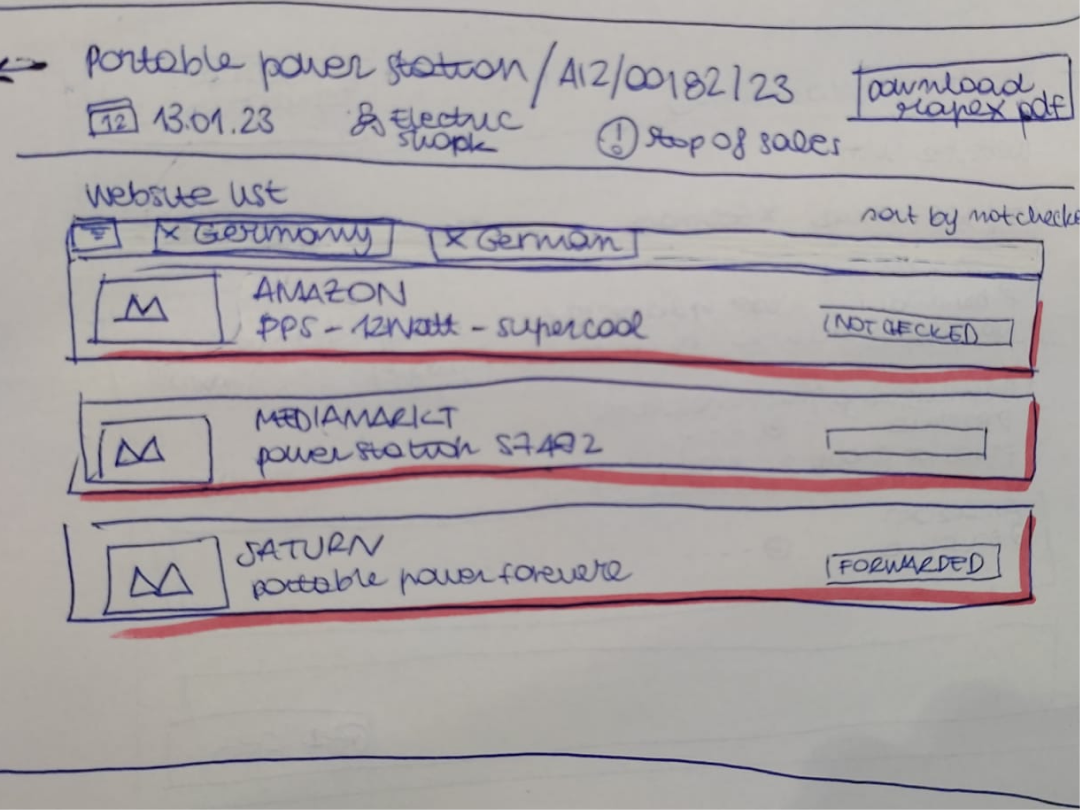 Portable power station / A12/00182/23
Download rapex pdf
12 13.01.23 Electric shopk
! Stop of sales
Website list
sort by notchecke
x Germany x German
AMAZON
PPS - 12Watt - supercool
NOT CHECKED
MEDIAMARKT
power station S7492
SATURN
portable power forevere
FORWARDED